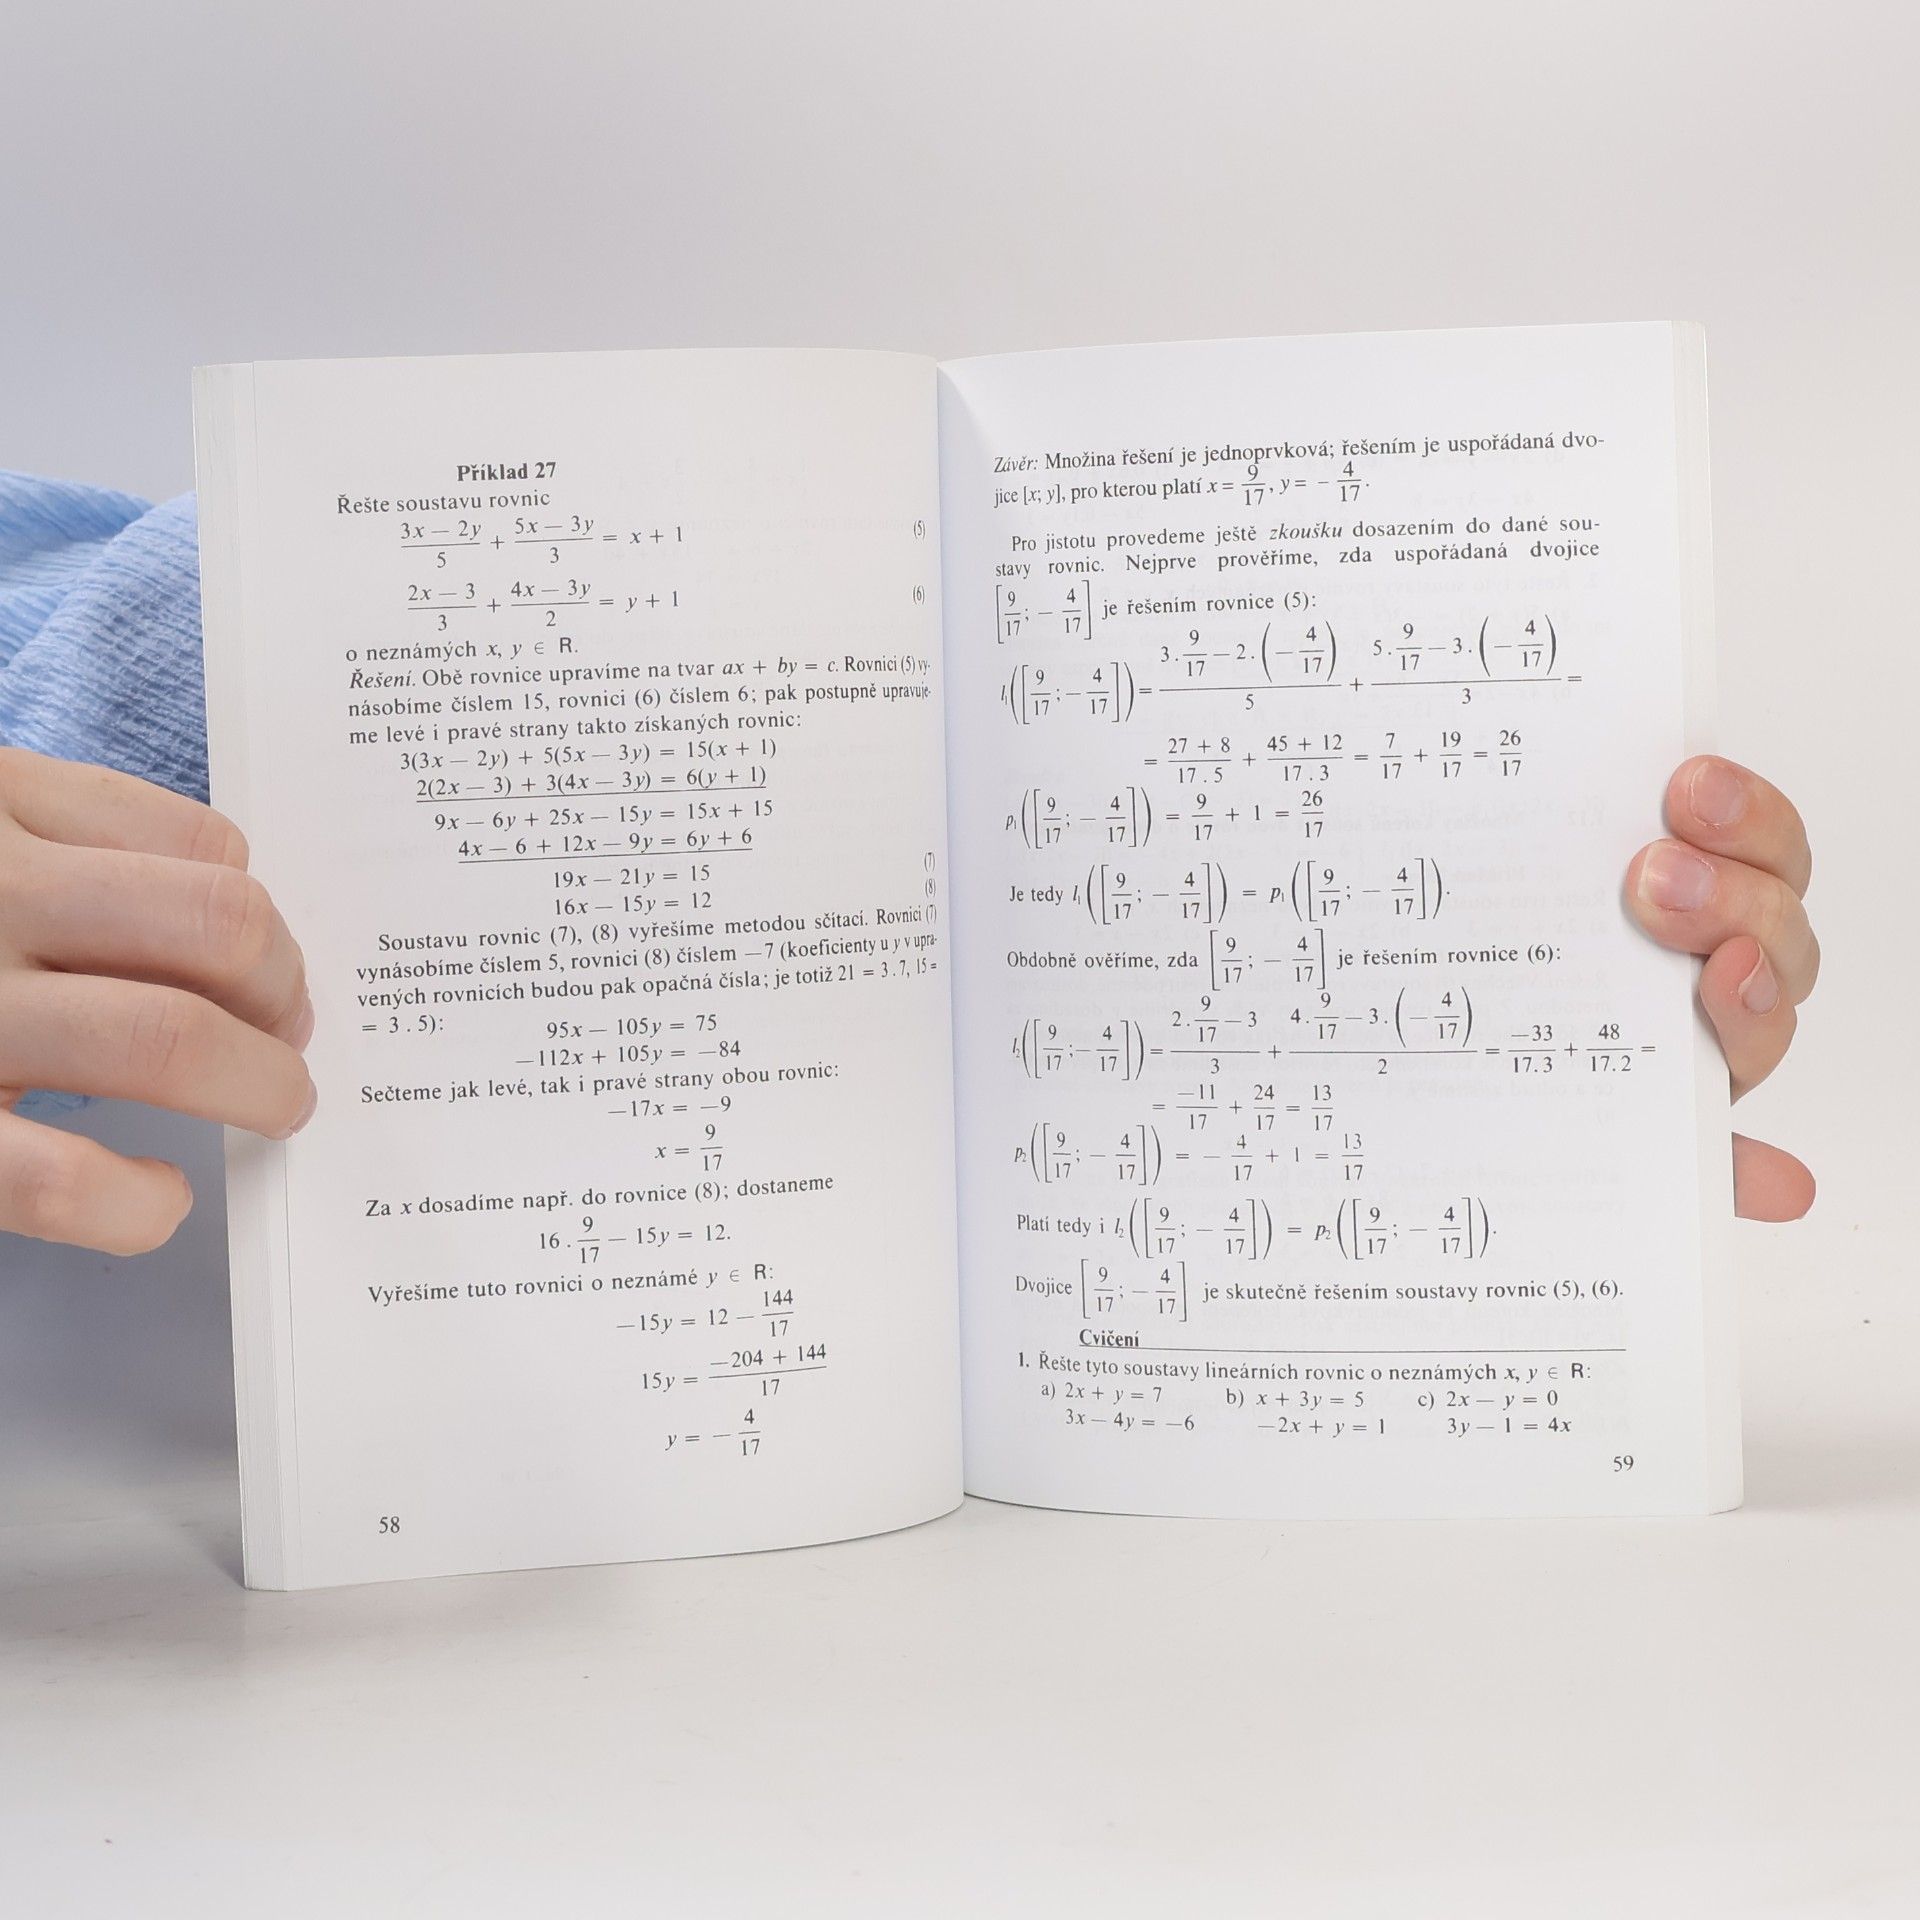 Příklad 27
Řešte soustavu rovnic
(3x − 2y)/5 + (5x − 3y)/3 = x + 1 (5)
(2x − 3)/3 + (4x − 3y)/2 = y + 1 (6)
o neznámých x, y ∈ R.
Řešení. Obě rovnice upravíme na tvar ax + by = c. Rovnici (5) vy-
násobíme číslem 15, rovnici (6) číslem 6; pak postupně upravuje-
me levé i pravé strany takto získaných rovnic:
3(3x − 2y) + 5(5x − 3y) = 15(x + 1)
2(2x − 3) + 3(4x − 3y) = 6(y + 1)
9x − 6y + 25x − 15y = 15x + 15
4x − 6 + 12x − 9y = 6y + 6
19x − 21y = 15 (7)
16x − 15y = 12 (8)
Soustavu rovnic (7), (8) vyřešíme metodou sčítací. Rovnici (7)
vynásobíme číslem 5, rovnici (8) číslem −7 (koeficienty u y v upra-
vených rovnicích budou pak opačná čísla; je totiž 21 = 3.7, 15 =
= 3 . 5):
95x − 105y = 75
−112x + 105y = −84
Sečteme jak levé, tak i pravé strany obou rovnic:
−17x = −9
x = 9/17
Za x dosadíme např. do rovnice (8); dostaneme
16 . 9/17 − 15y = 12.
Vyřešíme tuto rovnici o neznámé y ∈ R:
−15y = 12 − 144/17
15y = (−204 + 144)/17
y = − 4/17
58
Závěr: Množina řešení je jednoprvková; řešením je uspořádaná dvo-
jice [x; y], pro kterou platí x = 9/17, y = − 4/17.
Pro jistotu provedeme ještě zkoušku dosazením do dané sou-
stavy rovnic. Nejprve prověříme, zda uspořádaná dvojice
[9/17; − 4/17] je řešením rovnice (5):
l₁([9/17; − 4/17]) = (3 . 9/17 − 2 . (− 4/17))/5 + (5 . 9/17 − 3 . (− 4/17))/3 =
= (27 + 8)/(17 . 5) + (45 + 12)/(17 . 3) = 7/17 + 19/17 = 26/17
p₁([9/17; − 4/17]) = 9/17 + 1 = 26/17
Je tedy l₁([9/17; − 4/17]) = p₁([9/17; − 4/17]).
Obdobně ověříme, zda [9/17; − 4/17] je řešením rovnice (6):
l₂([9/17; − 4/17]) = (2 . 9/17 − 3)/3 + (4 . 9/17 − 3 . (− 4/17))/2 = −33/(17 . 3) + 48/(17 . 2) =
= −11/17 + 24/17 = 13/17
p₂([9/17; − 4/17]) = − 4/17 + 1 = 13/17
Platí tedy i l₂([9/17; − 4/17]) = p₂([9/17; − 4/17]).
Dvojice [9/17; − 4/17] je skutečně řešením soustavy rovnic (5), (6).
Cvičení
1. Řešte tyto soustavy lineárních rovnic o neznámých x, y ∈ R:
a) 2x + y = 7 b) x + 3y = 5 c) 2x − y = 0
3x − 4y = −6 −2x + y = 1 3y − 1 = 4x
59